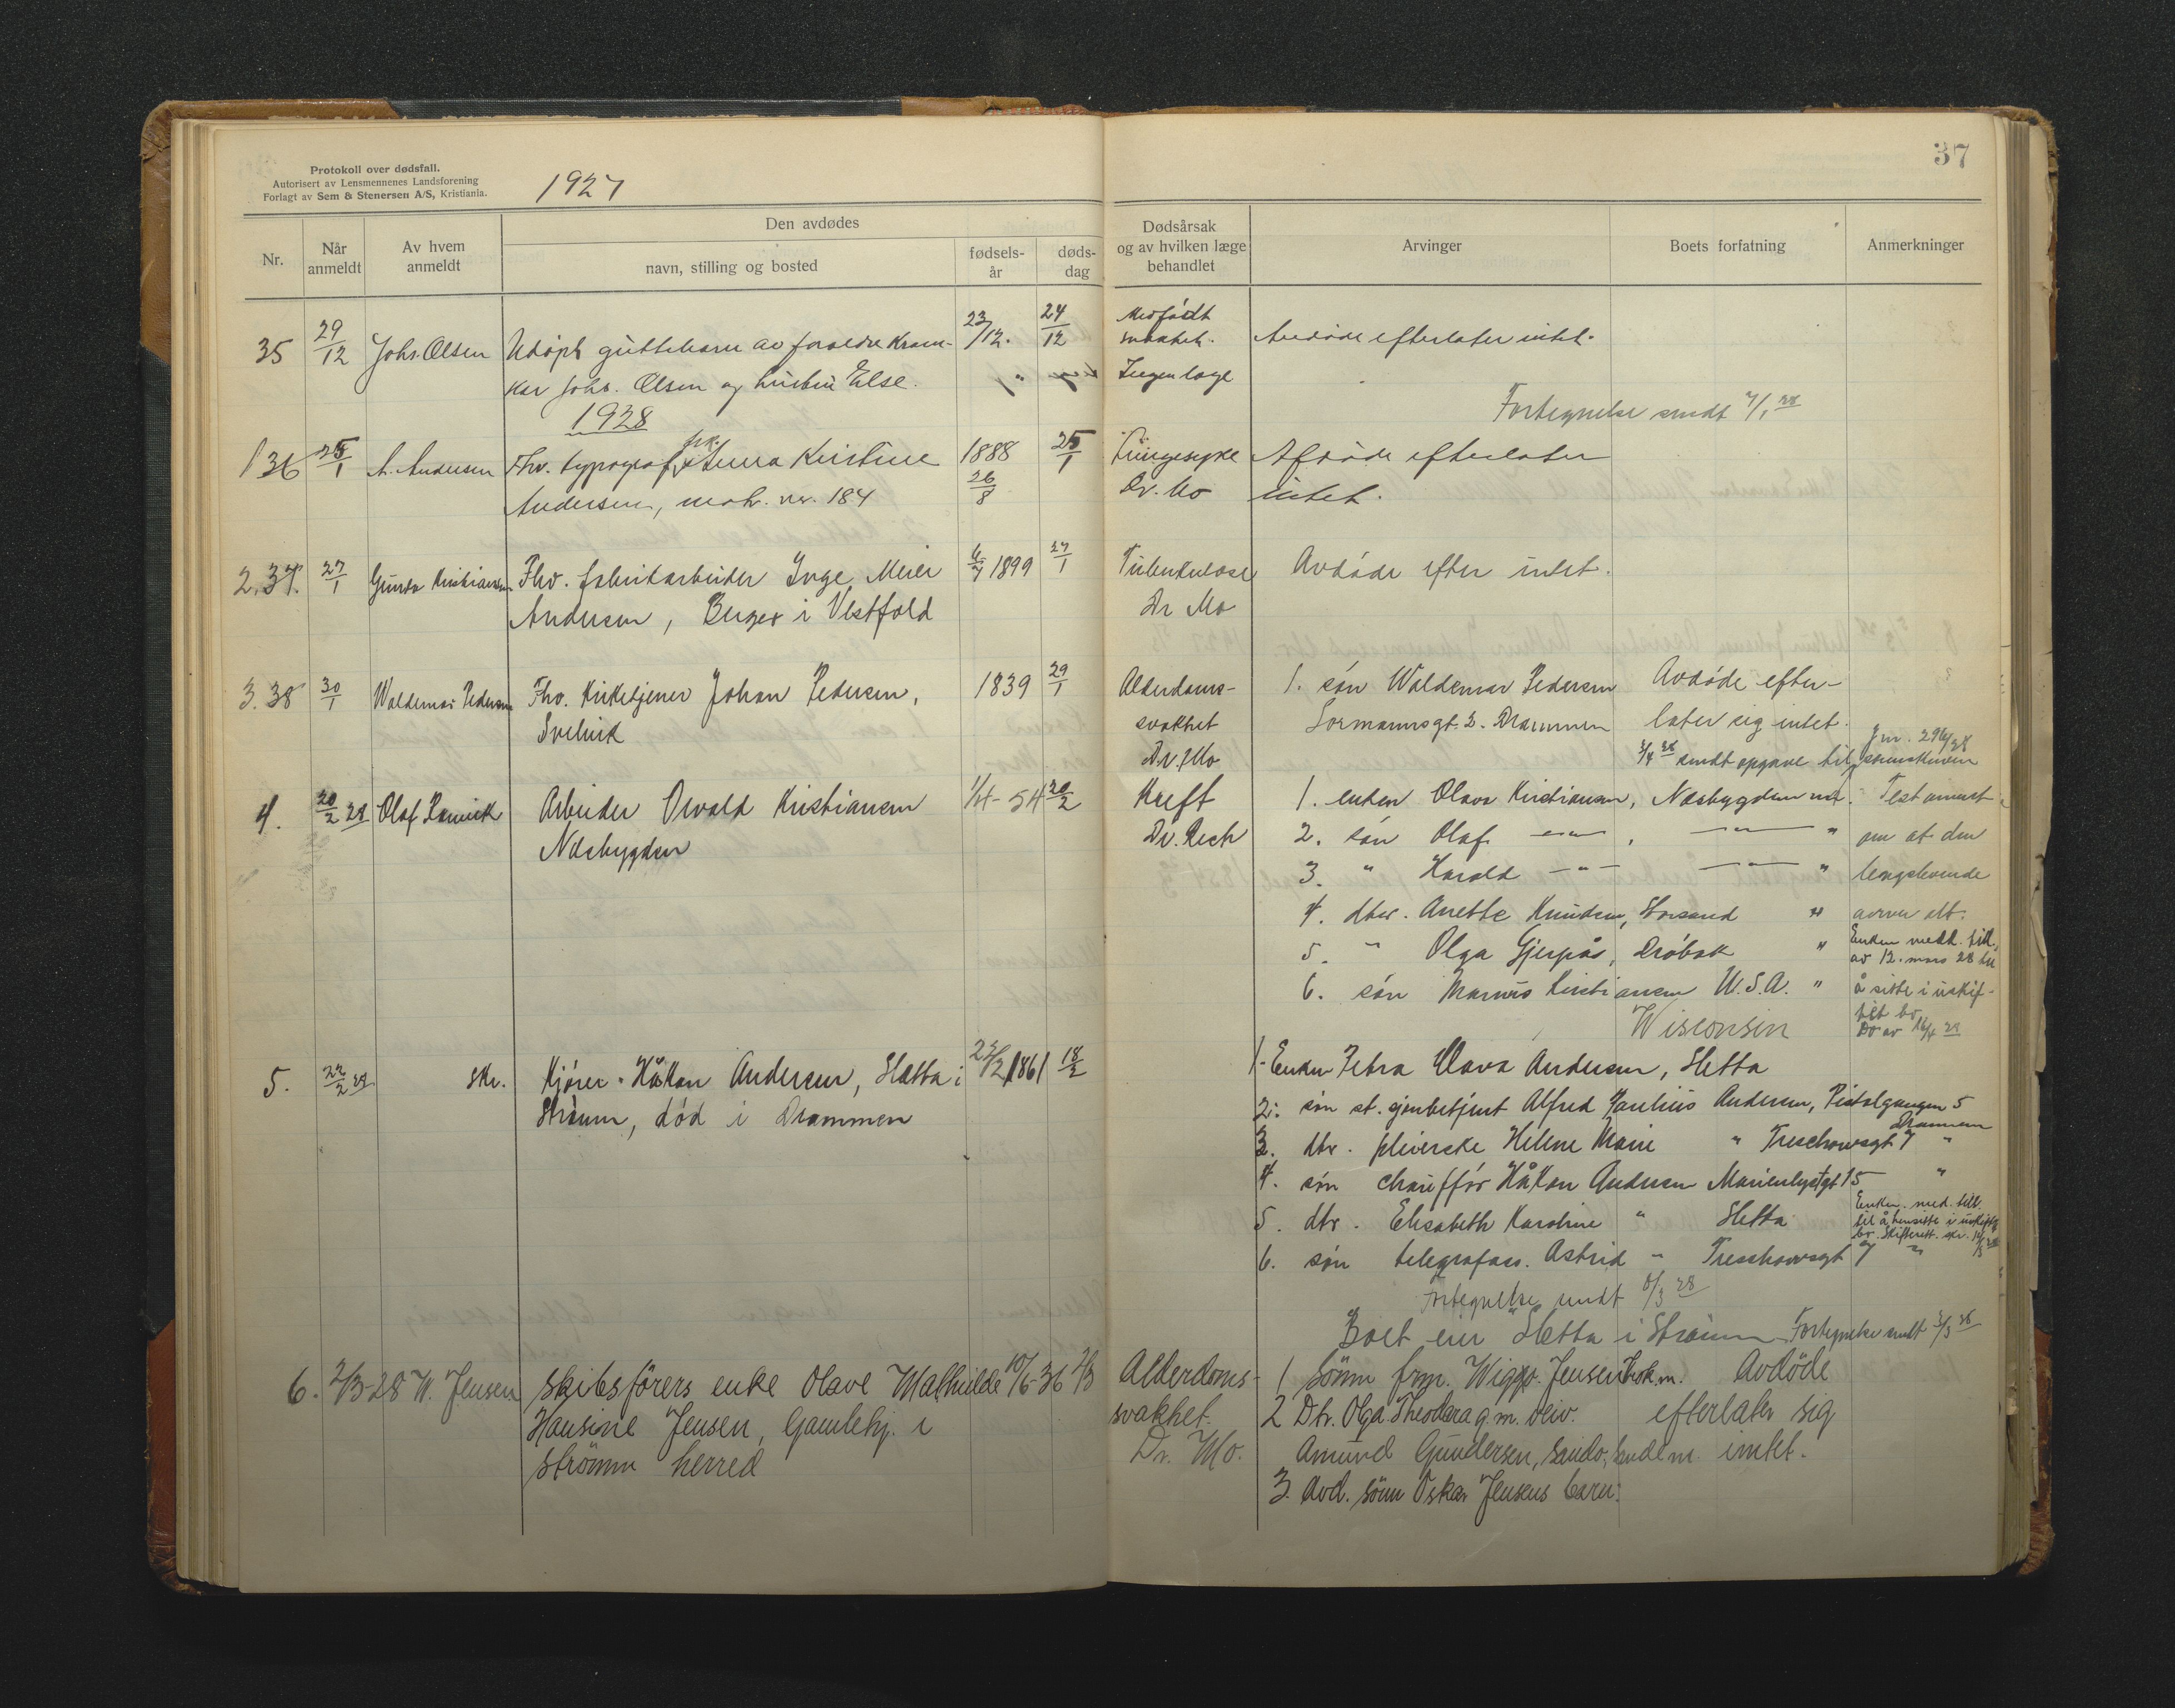 Protokoll over dødsfall.
Autorisert av Lensmennenes Landsforening
Forlagt av Sem & Stenersen A/S, Kristiania.
1927
37
Nr.
Når anmeldt
Av hvem anmeldt
Den avdødes
navn, stilling og bosted
fødsels-år
døds-dag
Dødsårsak og av hvilken læge behandlet
Arvinger
Boets forfatning
Anmerkninger
35 29/12 Johs. Olsen Udøpt guttebarn av foreldre Kram- 23/12. 24/12 Medfødt Avdøde efterlater intet.
kar Johs. Olsen og hustru Else. " svakhet. Ingen læge
Fortegnelse sendt 7/1 28
1928
1 36 25/1 A. Andersen Fhv. typograf frk. Anna Kristine 1888 25/1 Afdøde efterlater
Andersen, matr. nr. 184 26/8 Dr. Mo intet.
2. 37. 27/1 Kristiansen Fhv. fabrikarbeider Inge Meier 6/7 1899 27/1 Tuberkulose Avdøde efter intet.
Andersen, Berger i Vestfold Dr Mo
3. 38 30/1 Waldemar Pedersen Fhv. Kirketjener Johan Pedersen, 1839 29/1 Alderdoms- 1. søn Waldemar Pedersen Avdøde efter-
Svelvik svakhet gt. 2. Drammen later sig intet.
Dr. Mo
3/4 28 sendt opgave til J nr. 296/28
4. 20/2 28 Olaf Arbeider Osvald Kristiansen 1/4 - 54 20/2 Kreft 1. enken Olava Kristiansen, Næsbygden Testament
Næsbygden Dr. 2. søn Olaf — " — " om at den
3. " Harald — " — — " — " lengstlevende
4. dtr. Anette Knudsen, Storsand " arver alt.
5. " Olga Gjerpås, Drøbak " Enken medd. till.
av 12. mars 28 til
6. søn Kristiansen U.S.A. " å sitte i uskif-
tet bo
Wisconsin Do av 16/4 28
5. 22/2 28 skr. Kjører Håkan Andersen, Sletta i 1861 18/2 1. Enken Petra Olava Andersen, Sletta
Strømm, død i Drammen 2. søn st. Alfred Paulius Andersen, Pistolgangen 5
Drammen
3. dtr. pleierske Helene Marie " Treschowsgt 7 "
4. søn chauffør Håkon Andersen Marienlystgt 15 "
5. dtr. Elisabeth Karoline " Sletta Enken med. till.
til å hensitte i uskiftet
bo. Skifterett. skr.
6. søn telegrafass. Astrid " Treschowsgt 7 "
Fortegnelse sendt 8/3 28
Boet eier Sletta i Strømm Fortegnelse sendt 3/3 28
6. 2/3-28 W. Jensen Skibsførers enke Olave Mathilde 10/6-36 2/3 Alderdoms- 1 Sønn Wiggo. Jensen Avdöde
Hansine Jensen, Gamlehj. i svakhet. 2 Dtr. Olga Theodora g. m. efterlater sig
Strømm herred Dr. Mo. Amund Gundersen, intet.
3. Avd. sönn Oskar Jensens barn.